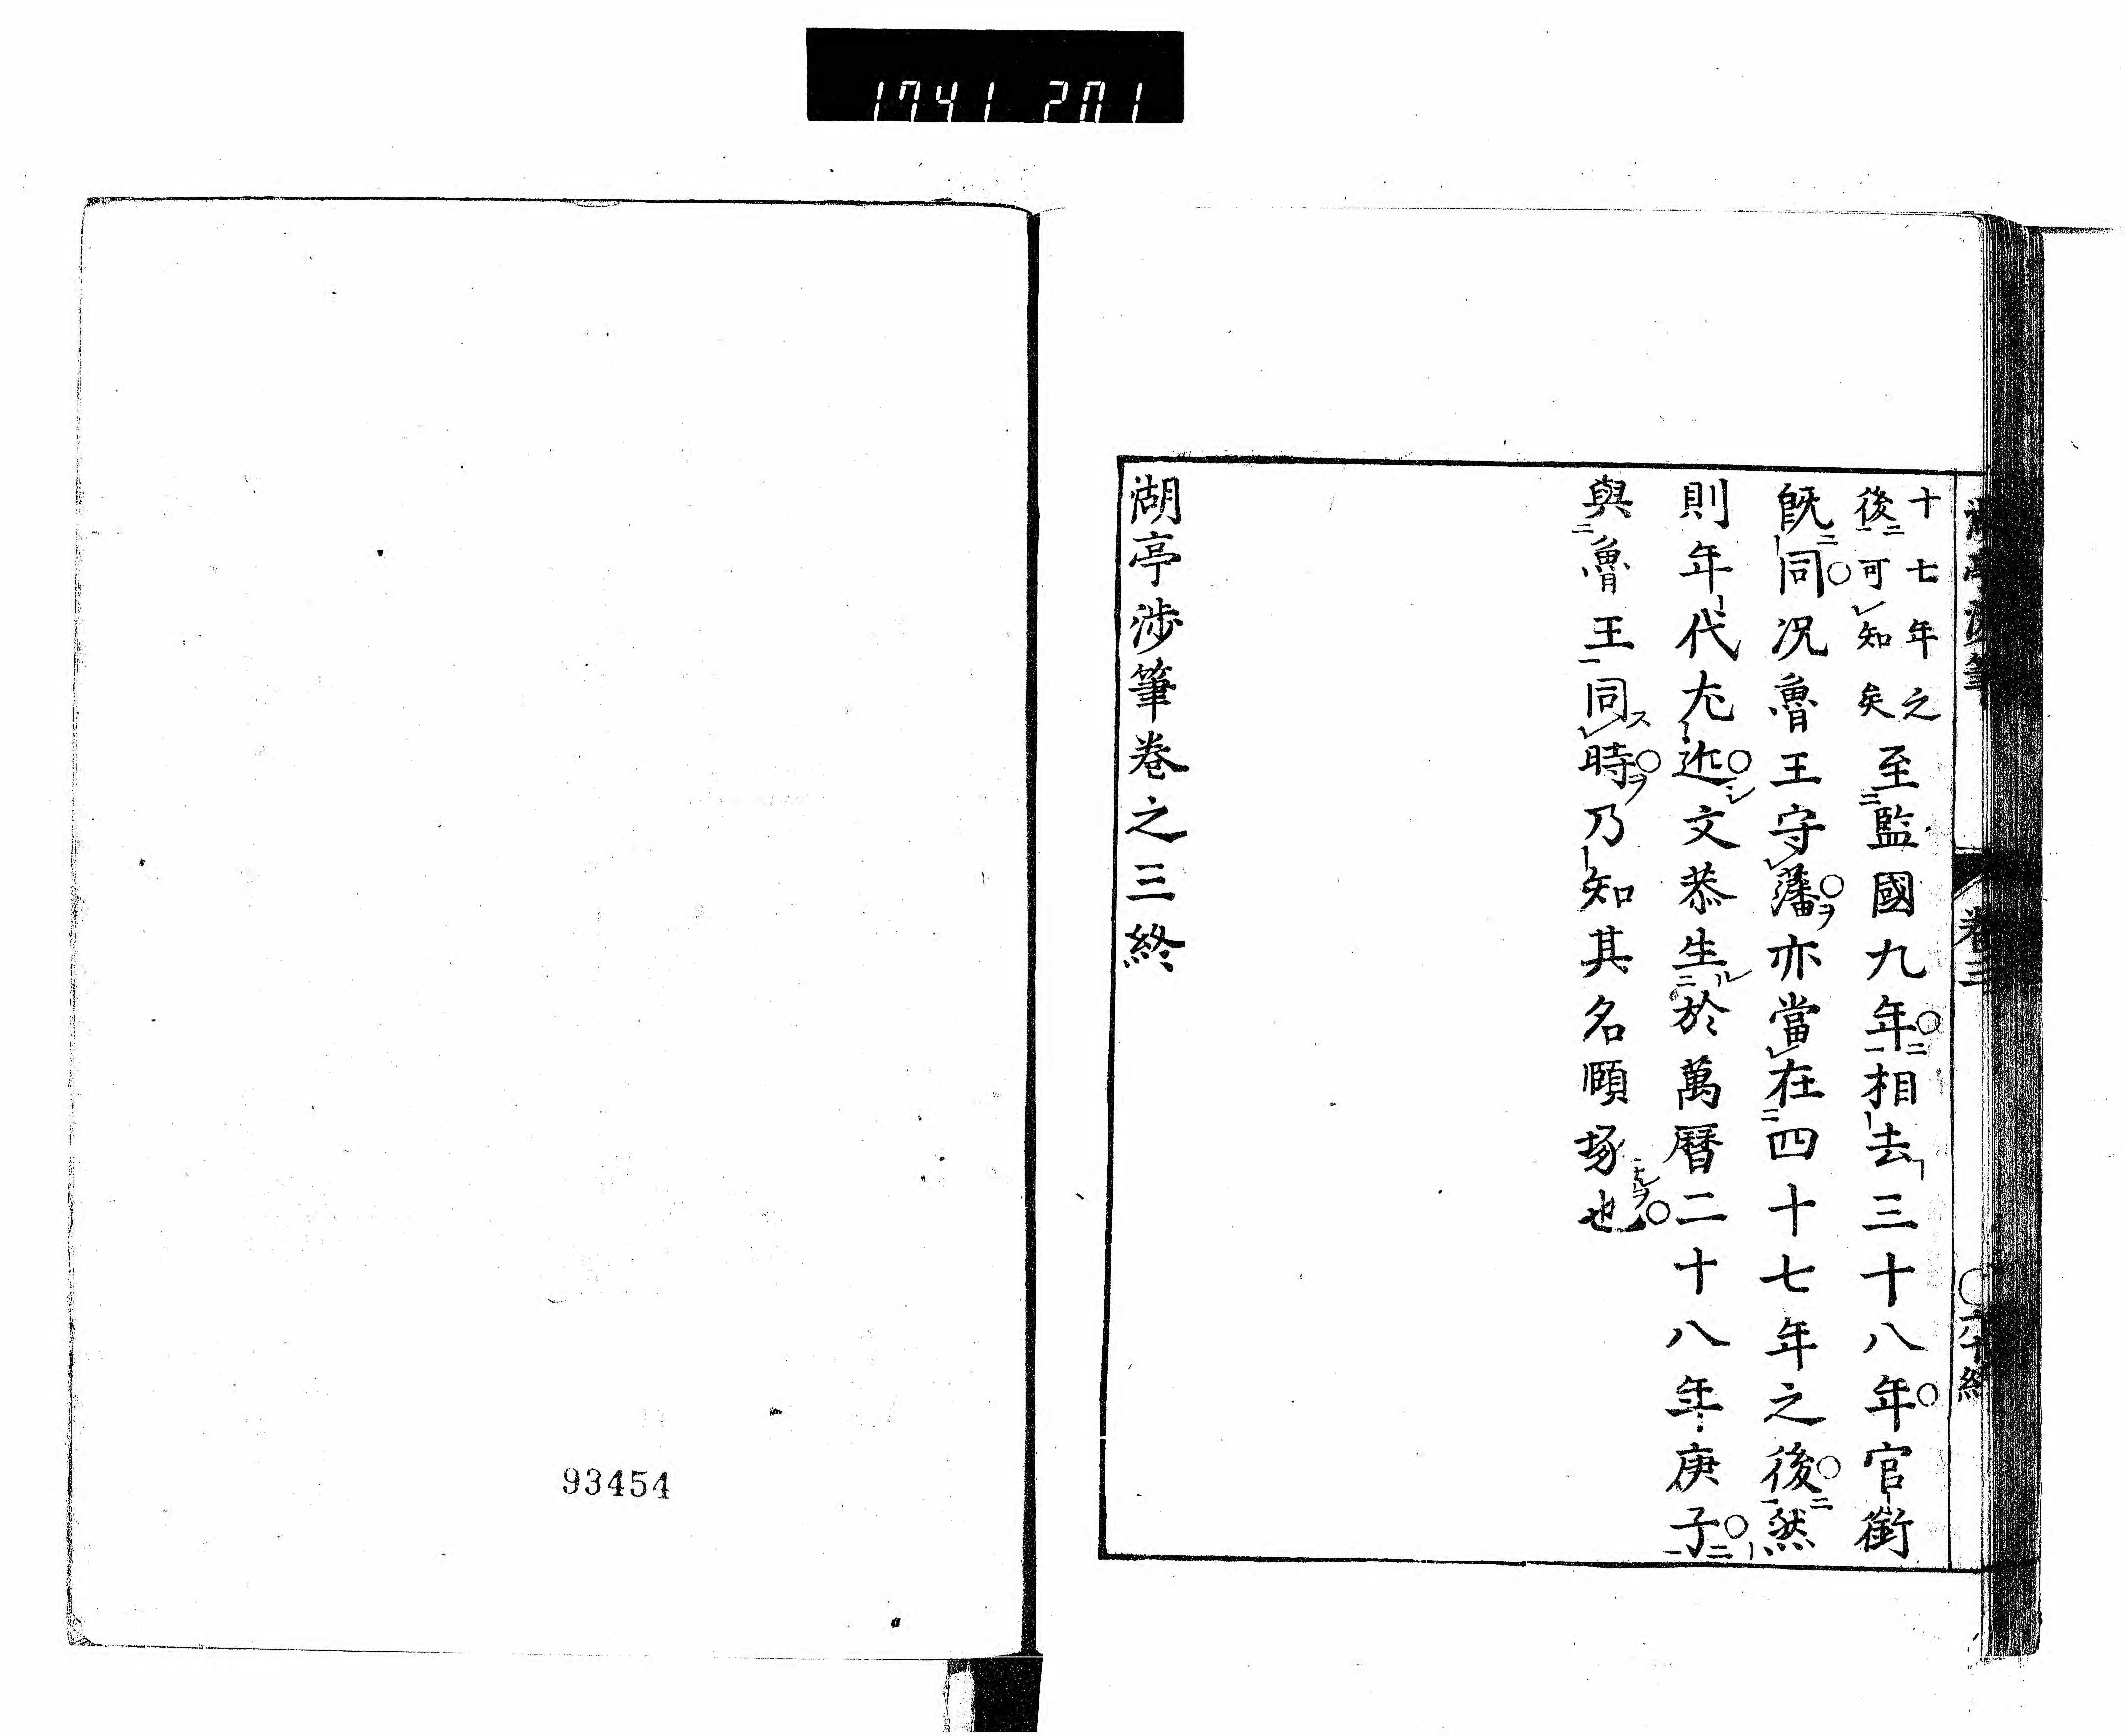 1741 201
十七年之
後可知矣
至監國九年相去三十八年官銜
既同況魯王守藩亦當在四十七年之後然
則年代尤近文恭生於萬曆二十八年庚子
與魯王同時乃知其名頤琢也
湖亭涉筆卷之三終
93454